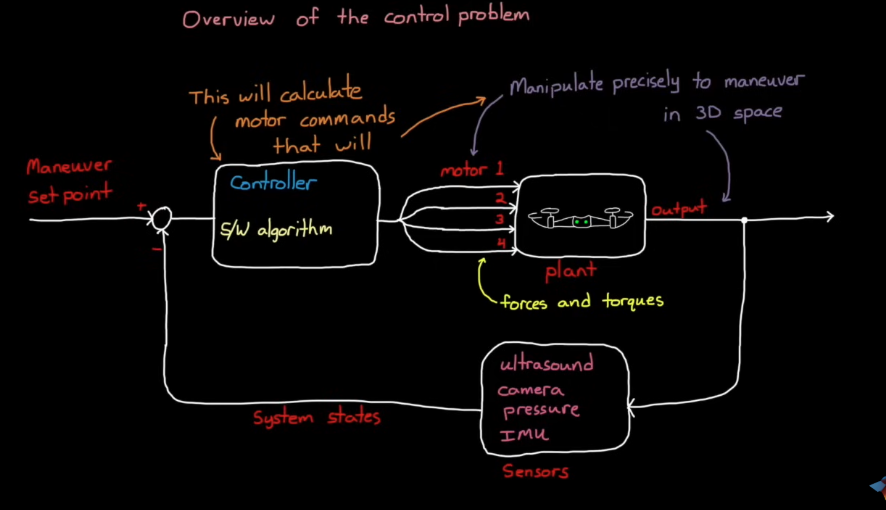 Overview of the control problem
This will calculate
motor commands
that will
Manipulate precisely to maneuver
in 3D space
Maneuver
set point
+
-
Controller
S/W algorithm
motor 1
2
3
4
output
plant
forces and torques
ultrasound
camera
pressure
IMU
System states
Sensors